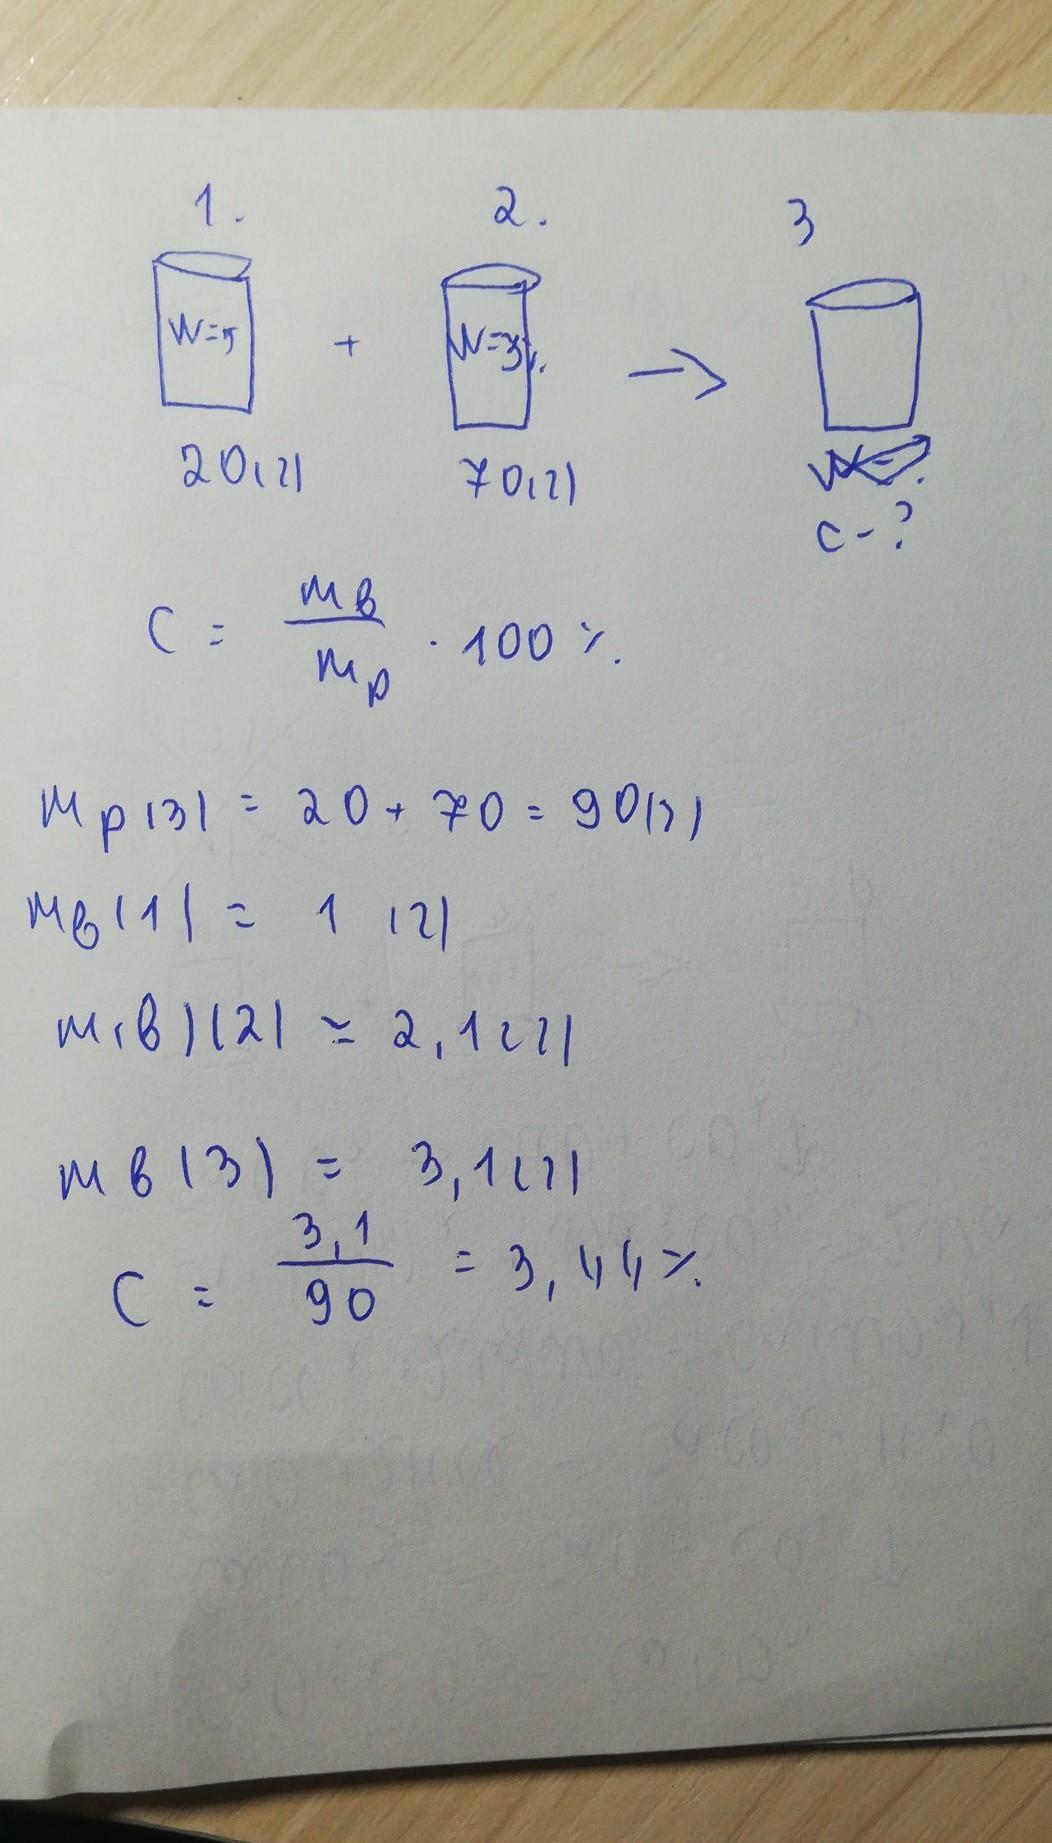 1. 2. 3
W=5 + W=3%. →
20(г) 70(г)
C-?
C = mв/mр · 100%.
mр(3) = 20 + 70 = 90(г)
mв(1) = 1 (г)
m(в)(2) = 2,1(г)
mв(3) = 3,1(г)
C = 3,1/90 = 3,44%.